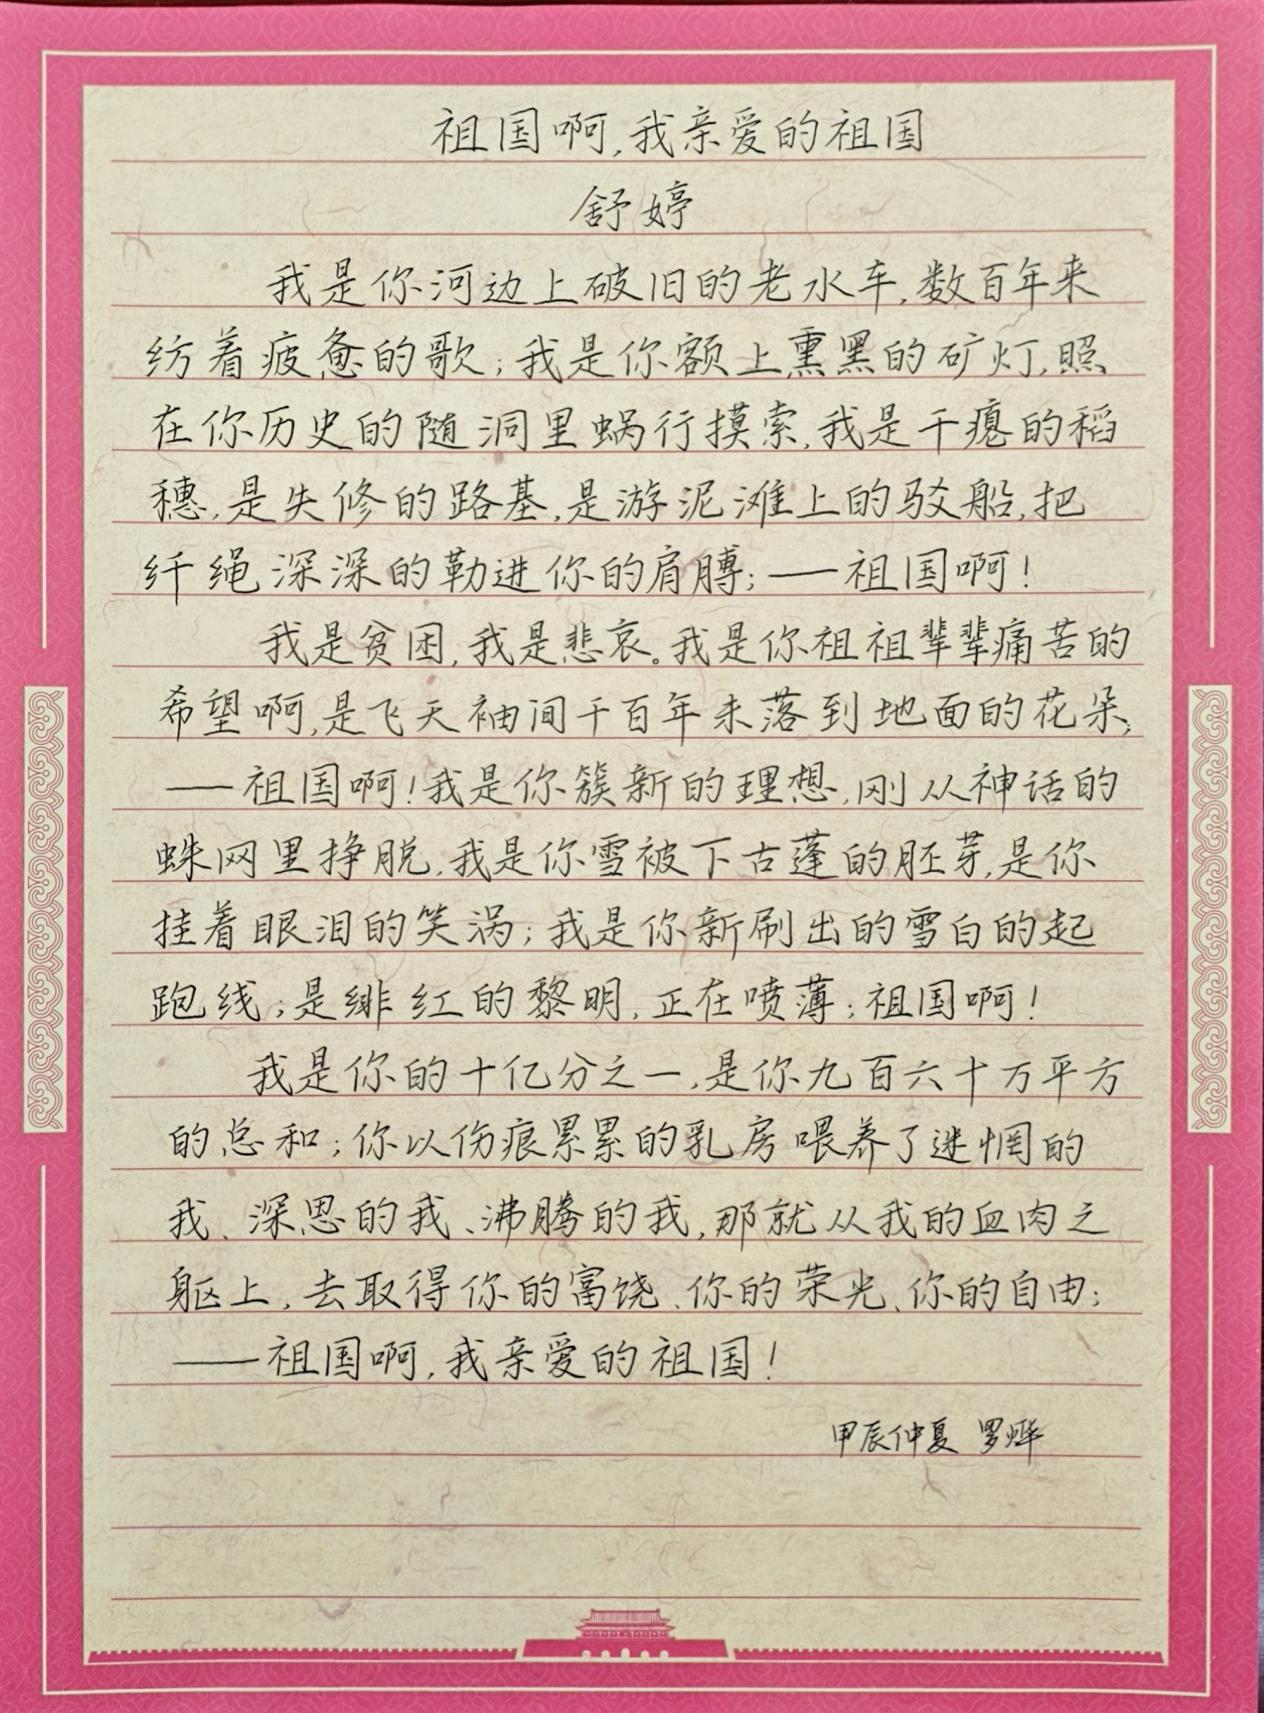 祖国啊,我亲爱的祖国
舒婷
我是你河边上破旧的老水车,数百年来
纺着疲惫的歌;我是你额上熏黑的矿灯,照
在你历史的随洞里蜗行摸索,我是干瘪的稻
穗,是失修的路基,是游泥滩上的驳船,把
纤绳深深的勒进你的肩膊;——祖国啊!
我是贫困,我是悲哀。我是你祖祖辈辈痛苦的
希望啊,是飞天袖间千百年未落到地面的花朵;
——祖国啊!我是你簇新的理想,刚从神话的
蛛网里挣脱,我是你雪被下古莲的胚芽,是你
挂着眼泪的笑涡;我是你新刷出的雪白的起
跑线;是绯红的黎明,正在喷薄;祖国啊!
我是你的十亿分之一,是你九百六十万平方
的总和;你以伤痕累累的乳房喂养了迷惘的
我、深思的我、沸腾的我,那就从我的血肉之
躯上,去取得你的富饶、你的荣光、你的自由;
——祖国啊,我亲爱的祖国!
甲辰仲夏 罗烨